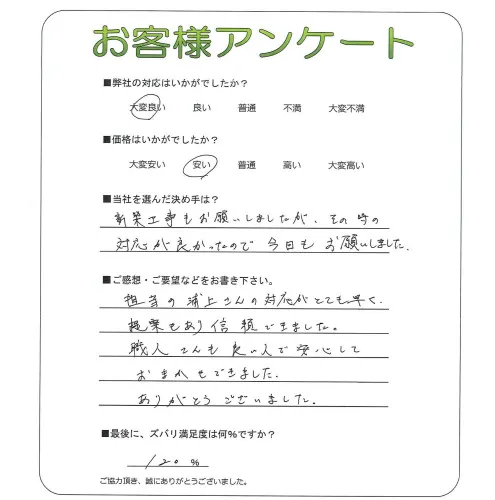 お客様アンケート
■弊社の対応はいかがでしたか？
大変良い 良い 普通 不満 大変不満
■価格はいかがでしたか？
大変安い 安い 普通 高い 大変高い
■当社を選んだ決め手は？
新築工事もお願いしましたが、その時の
対応が良かったので今日もお願いしました.
■ご感想・ご要望などをお書き下さい。
担当の浦上さんの対応がとても早く、
提案もあり信頼できました。
職人さんも良い人で安心して
おまかせできました.
ありがとうございました.
■最後に、ズバリ満足度は何％ですか？
120 %
ご協力頂き、誠にありがとうございました。